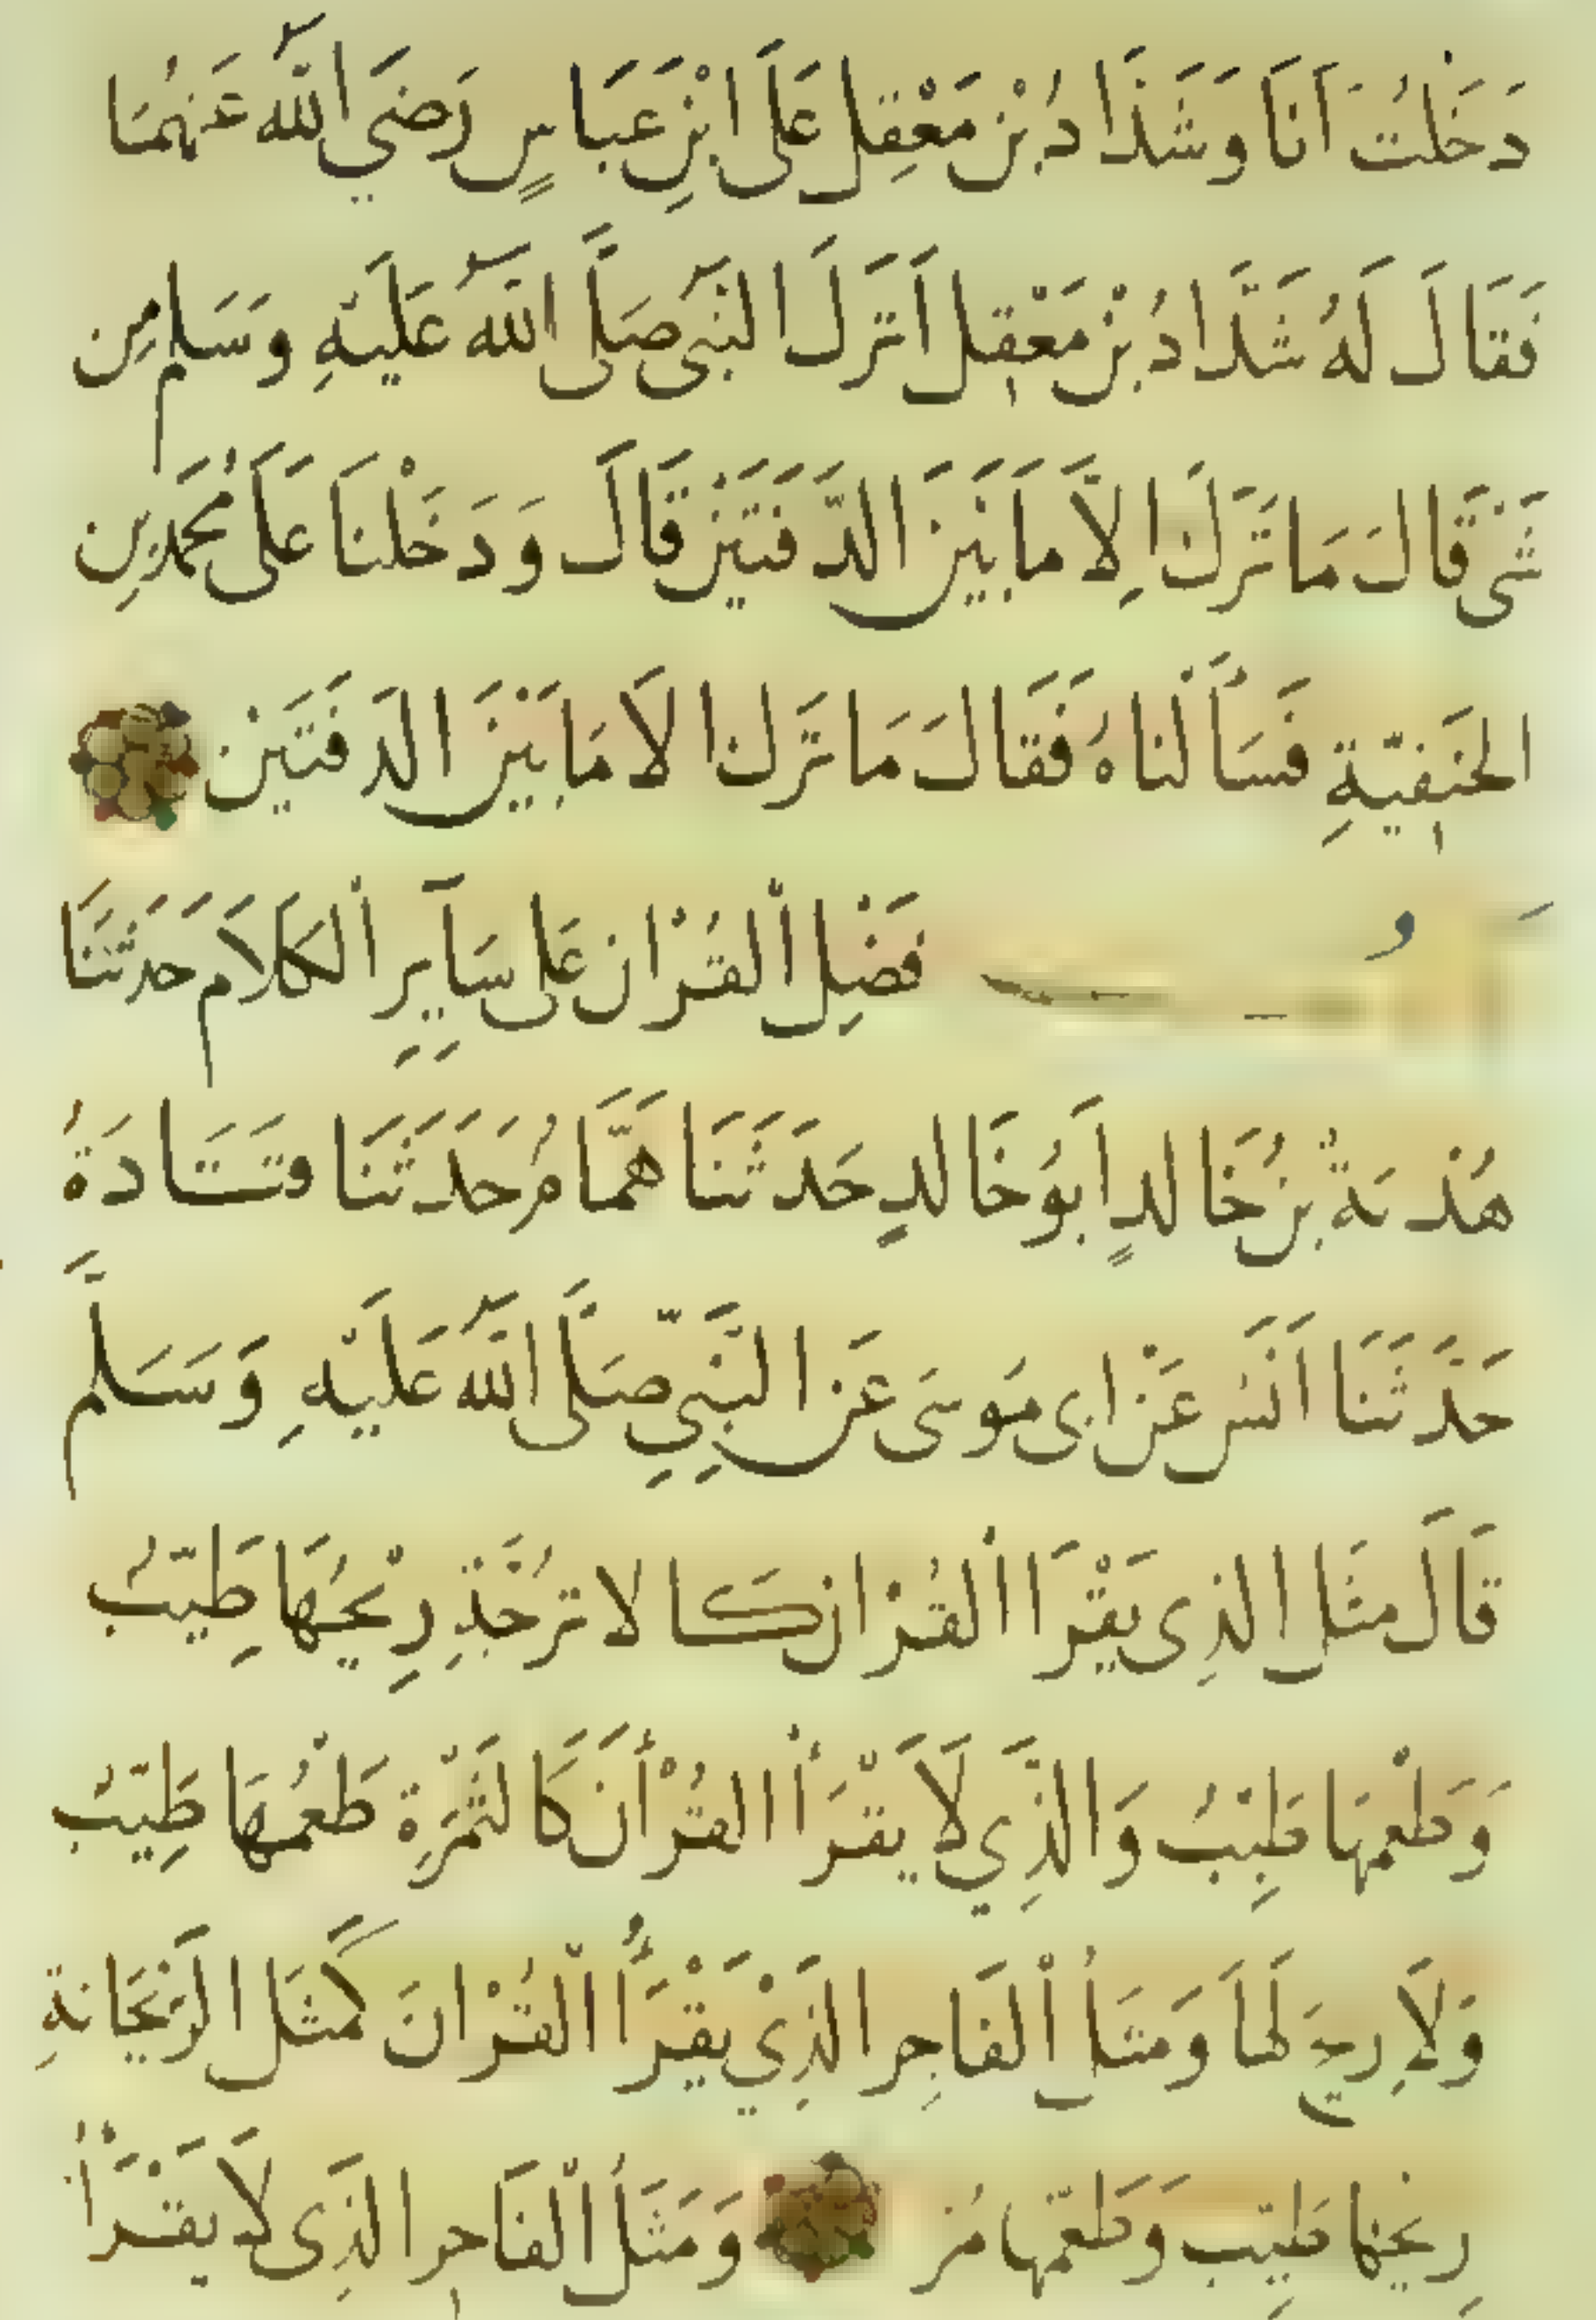 دَخَلْتُ اَنَا وَشَدَّادُ بْنُ مَعْقِلٍ عَلَى ابْنِ عَبَاسٍ رَضِيَ اللّٰهُ عَنْهُمَا
فَقَالَ لَهُ شَدَّادُ بْنُ مَعْقِلٍ اَتَرَكَ النَّبِىُّ صَلَّى اللّٰهُ عَلَيْهِ وَسَلم مِن
شَىْ قَالَ مَا تَرَكَ اِلَّا مَا بَيْنَ الدَّفَتَيْنِ قَالَ وَدَخَلْنَا عَلَى مُحَمَّدِ بْنِ
الحَنَفِيَّةِ فَسَأَلْنَاهُ فَقَالَ مَا تَرَكَ الَا مَا بَيْنَ الدَفَتَيْن
فَضْلِ الْقُرْان عَلى سَآيِرِ الْكَلَام حَدثَنَا
هُدْبَةُ بْنُ خَالدٍ اَبُو خَالدٍ حَدَثَنَا هَمَّامُ حَدَثَنَا قَتَادَةُ
حَدَّثَنَا اَنَسُ عَنْ اَبى مُوسَى عَن النَّبِيِّ صَلَّى اللّٰهُ عَلَيْهِ وَسَلَّم
قَالَ مَثَل الذِى يَقْرَا الْقُرْان كَالاتْرُجَّةِ رِيْحُهَا طَيِّبُ
وَطَعْمهَا طَيِّبُ وَالَّذِي لَا يَقْرَأُ القُرْأَن كَالتَّمْرَةِ طَعْمُهَا طَيِّبُ
وَلَا رِيحَ لَهَا وَمَثَلُ الْفَاجِر الَّذِيْ يَقْرَأُ الْقُرْانَ كَمَثَل الرَّيْحَانَةِ
رِيحُهَا طَيِّب وَطَعْمهَا مُر وَمَثَلُ الْفَاجِر الَذِى لَا يَقْرَأُ